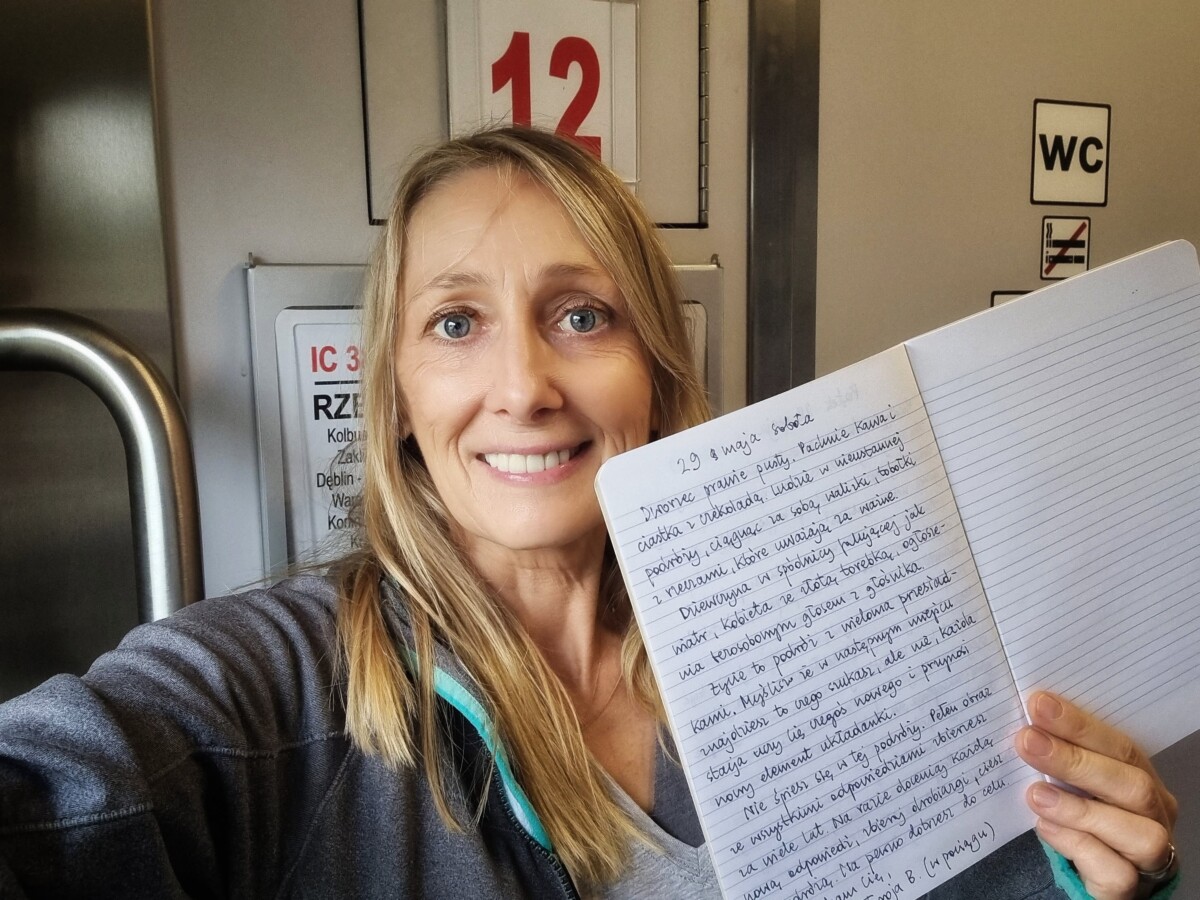 12
WC
IC 3
RZE
Kolbu
Zakl
Dęblin -
Wars
Koni
K
29 maja sobota
Dworzec prawie pusty. Pachnie kawa i
ciastka z czekoladą. Ludzie w nieustannej
podróży, ciągnąc za sobą walizki, tobołki
z rzeczami, które uważają za ważne.
Dziewczyna w spódnicy falującej jak
wiatr, kobieta ze złotą torebką, ogłosze-
nia bezosobowym głosem z głośnika
Życie to podróż z wieloma przesiad-
kami. Myślisz że w następnym miejscu
znajdziesz to czego szukasz, ale nie, każda
stacja uczy cię czegoś nowego i przynosi
nowy element układanki.
Nie śpiesz się w tej podróży. Pełen obraz
ze wszystkimi odpowiedziami zbierzesz
za wiele lat. Na razie doceniaj każdą
nową odpowiedź, zbieraj drobiazgi, ciesz
drogą. Na pewno dobrzesz do celu
Cię,
Twoja B. (w pociągu)